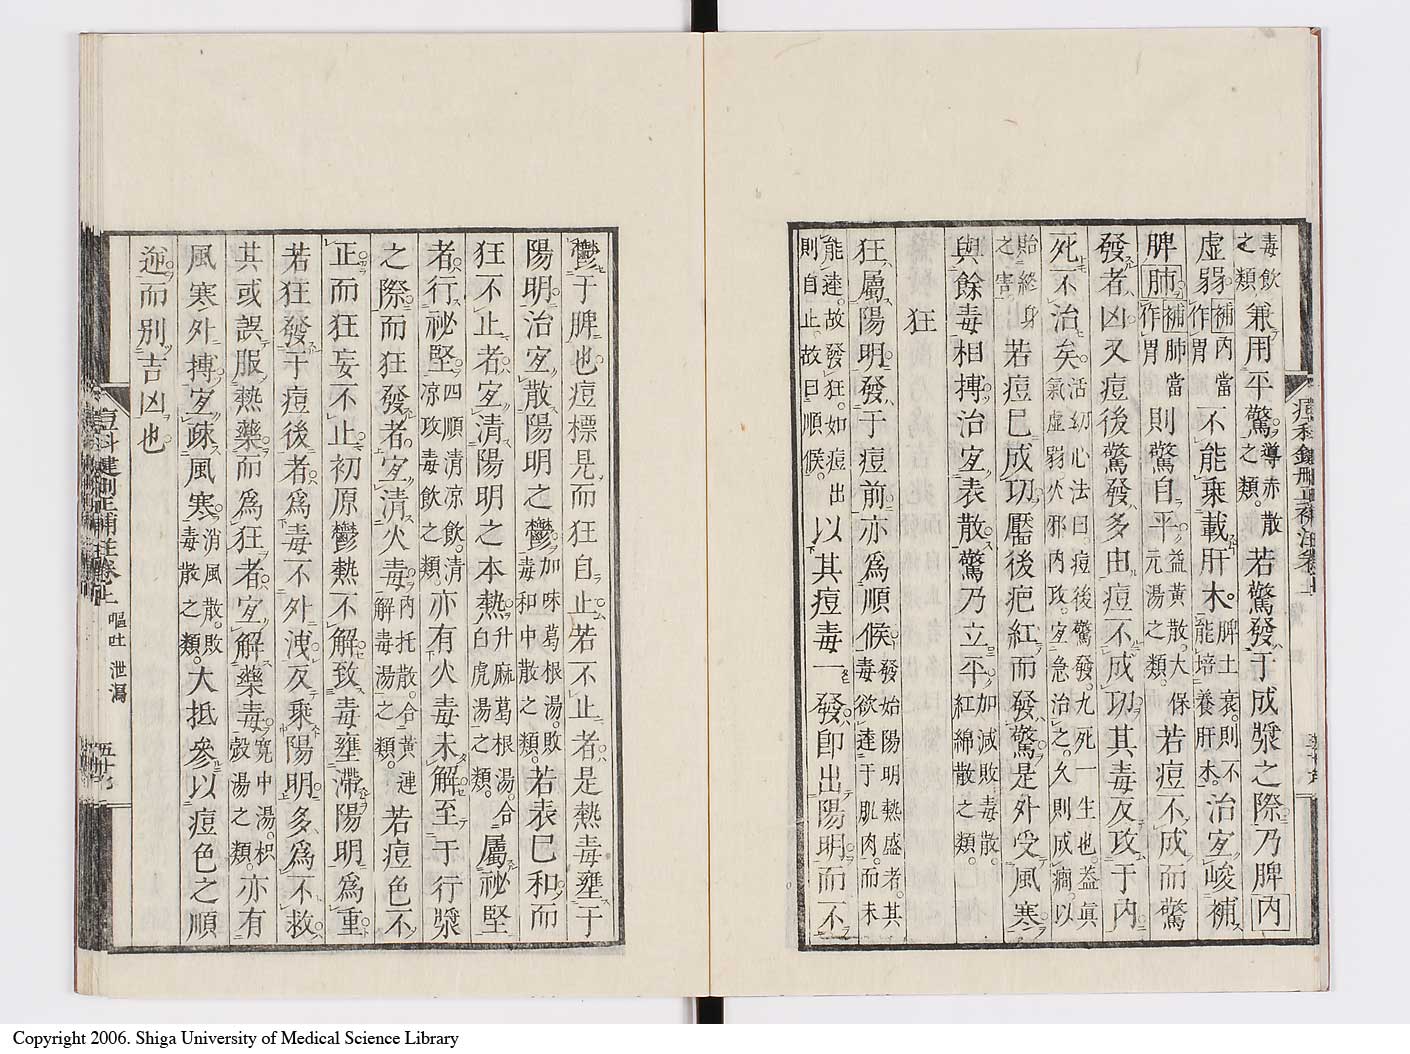 毒飲之類兼用平驚導赤散之類。若驚發于成漿之際乃脾内
虚弱補内當作胃不能乗載肝木。脾土衰。則不能培養肝木。治宜峻補
脾肺補肺當作胃則驚自平益黄散。大保元湯之類。若痘不成而驚
發者凶又痘後驚發多由痘不成功其毒反攻于内
死不治矣活幼心法曰。痘後驚發。九死一生也。益眞氣虚弱火邪内攻。宜急治之。久則成癇。以
貽終身之害若痘已成功靨後疤紅而發驚是外受風寒
與餘毒相搏治宜表散驚乃立平加減敗毒散。紅綿散之類。
狂
狂屬陽明發于痘前亦爲順候發始陽明熱盛者。其毒欲達于肌肉。而未
能達。故發狂。如痘出則自止。故曰順候。以其痘毒一發即出陽明而不
鬱于脾也痘標見而狂自止若不止者是熱毒壅于
陽明治宜散陽明之鬱加味葛根湯。敗毒和中散之類。若表已和而
狂不止者宜清陽明之本熱升麻葛根湯。合白虎湯之類。屬祕堅
者行祕堅四順清凉飲。清凉攻毒飲之類亦有火毒未解至于行漿
之際而狂發者宜清火毒内托散。合黄連解毒湯之類。若痘色不
正而狂妄不止初原鬱熱不解致毒壅滞陽明爲重
若狂發于痘後者爲毒不外洩反乗陽明多爲不救
其或誤服熱藥而爲狂者宜解藥毒寛中湯。枳殻湯之類。亦有
風寒外搏宜疎風寒消風散。敗毒散之類。大抵參以痘色之順
逆而別吉凶也
嘔吐 泄瀉
五十九
Copyright 2006. Shiga University of Medical Science Library